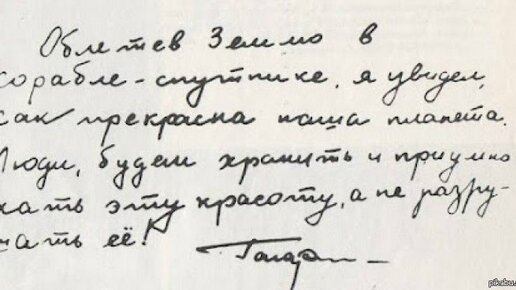 Облетев Землю в
корабле-спутнике, я увидел,
как прекрасна наша планета.
Люди, будем хранить и приумно
жать эту красоту, а не разру-
шать её!
Гагарин
pikabu.